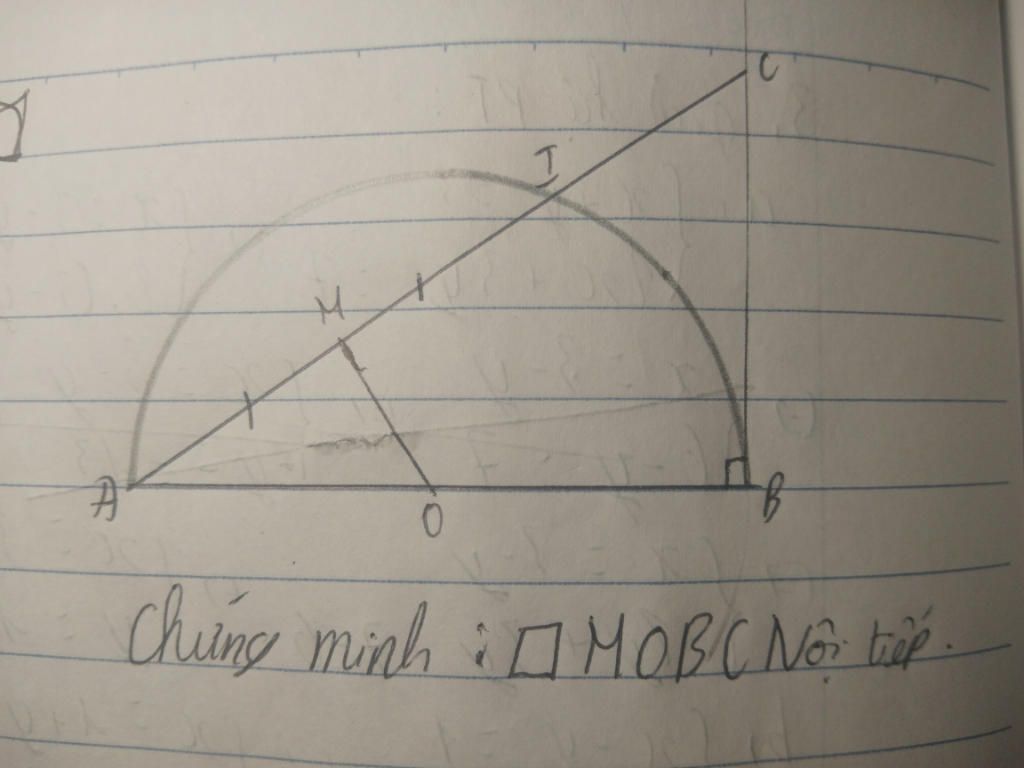 C
I
M
A
O
B
Chứng minh : □ MOBC Nội tiếp.